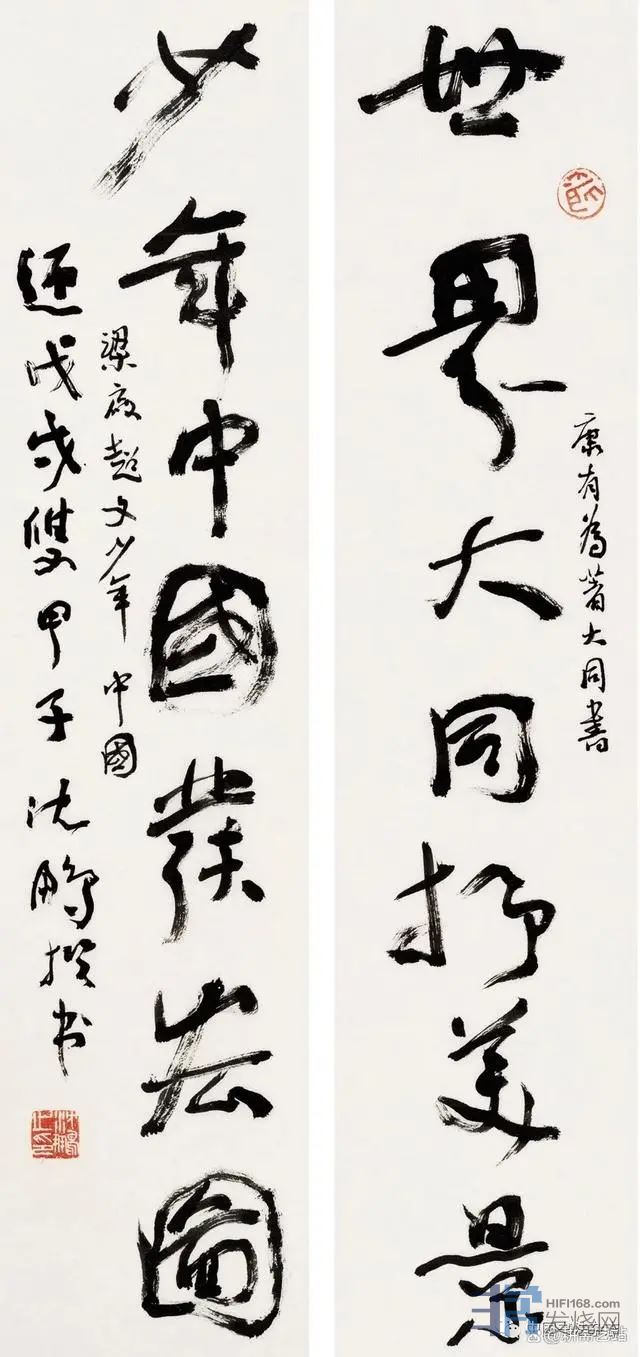 世界大同抒美景
康有為著大同書
少年中國發宏圖
梁啟超文少年中國
戊戌雙甲子沈鵬撰书
沈鵬之印
HIFI168.com
发烧网